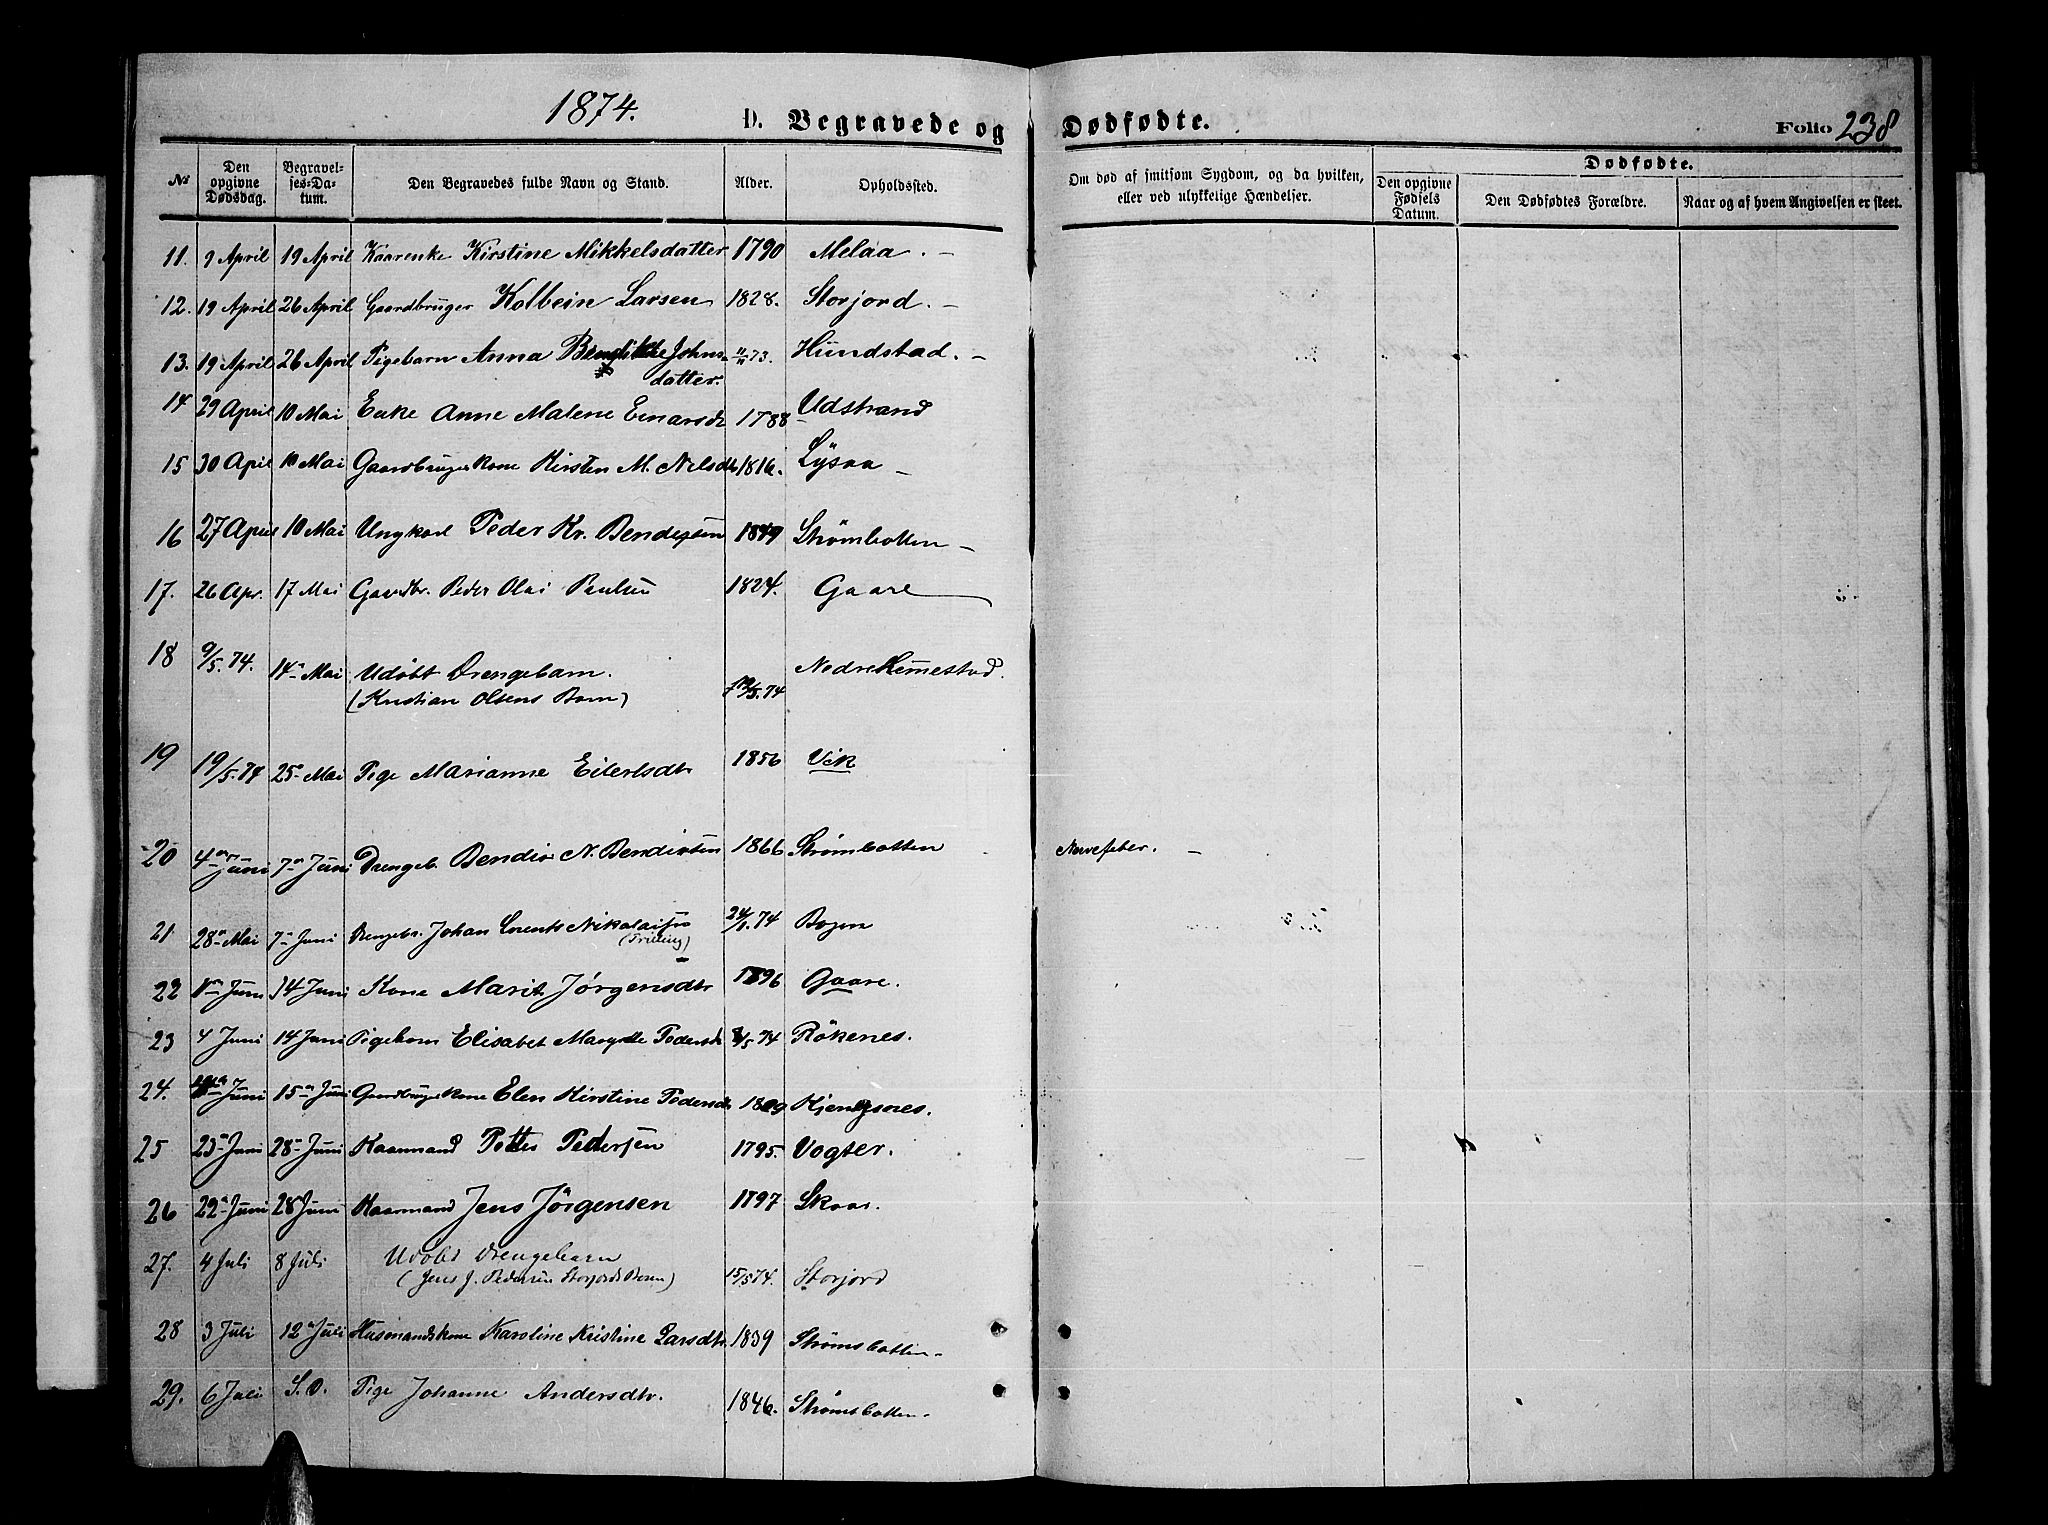 1874.
D. Begravede og Dødfødte. Folio 238
No Den opgivne Dødsdag. Begravelses-Datum. Den Begravedes fulde Navn og Stand. Alder. Opholdssted. Om død af smitsom Sygdom, og da hvilken, eller ved ulykkelige Hændelser. Den opgivne Fødsels Datum. Dødfødte. Den Dødfødtes Forældre. Naar og af hvem Angivelsen er skeet.
11. 9 April 19 April Kaarenke Kirstine Mikkelsdatter 1790 Melaa. -
12. 19 April 26 April Gaardbruger Kolbein Larsen 1828. Storjord. -
13. 19 April 26 April Pigebarn Anna Johns 73. Hundstad. -
datter.
14 29 April 10 Mai Enke Anne Malene Einarsdt 1788 Udstrand
15 30 April 10 Mai Gaardbrugerkone Kirsten M. Nilsdtr 1816. Lysaa -
16 27 April 10 Mai Ungkarl Peder Kr. Bendigsen 1849 Strømbotten -
17. 26 Apr. 17 Mai Gaardbr. Peder Olai Paulsen 1824. Gaare
18 9/5. 74. 14de Mai Udøbt Drengebarn. Nedre Kimestad.
(Kristian Olsens Barn) /5. 74
19 19/5. 74 25de Mai Pige Marianne Eilertsdtr 1856 Vik
20 4de Juni 7de Juni Drengeb. Bendix N. Bendixsen 1866 Strømbotten Nervefeber. -
21 28de Mai 7de Juni Drengebr. Johan Lorents Nikolaisen 24/1. 74 Bogen
(Trilling)
22 Juni 14 Juni Kone Marit Jørgensdtr 1796 Gaare.
23 4 Juni 14 Juni Pigebarn Elisabet Margrette Pedersdt /5 74 Røkenes.
24. Juni 15de Juni Gaardbrugerkone Elen Kirstine Pedersdt 1809 Kjengsnes.
25 23de Juni 28de Juni Kaarmand Petter Pedersen 1795. Vogter.
26 22de Juni 28 Juni Kaarmand Jens Jørgensen 1797 Skaar.
27. 4 Juli 8 Juli Udøbt Drengebarn
(Jens J. Pedersen Storjords Barn) 15/5 74. Storjord
28 3 Juli 12de Juli Husmandskone Karoline Kristine Larsdtr. 1839 Strømsbotten -
29. 6 Juli S. D. Pige Johanne Andersdtr. 1846. Strømsbotten. -